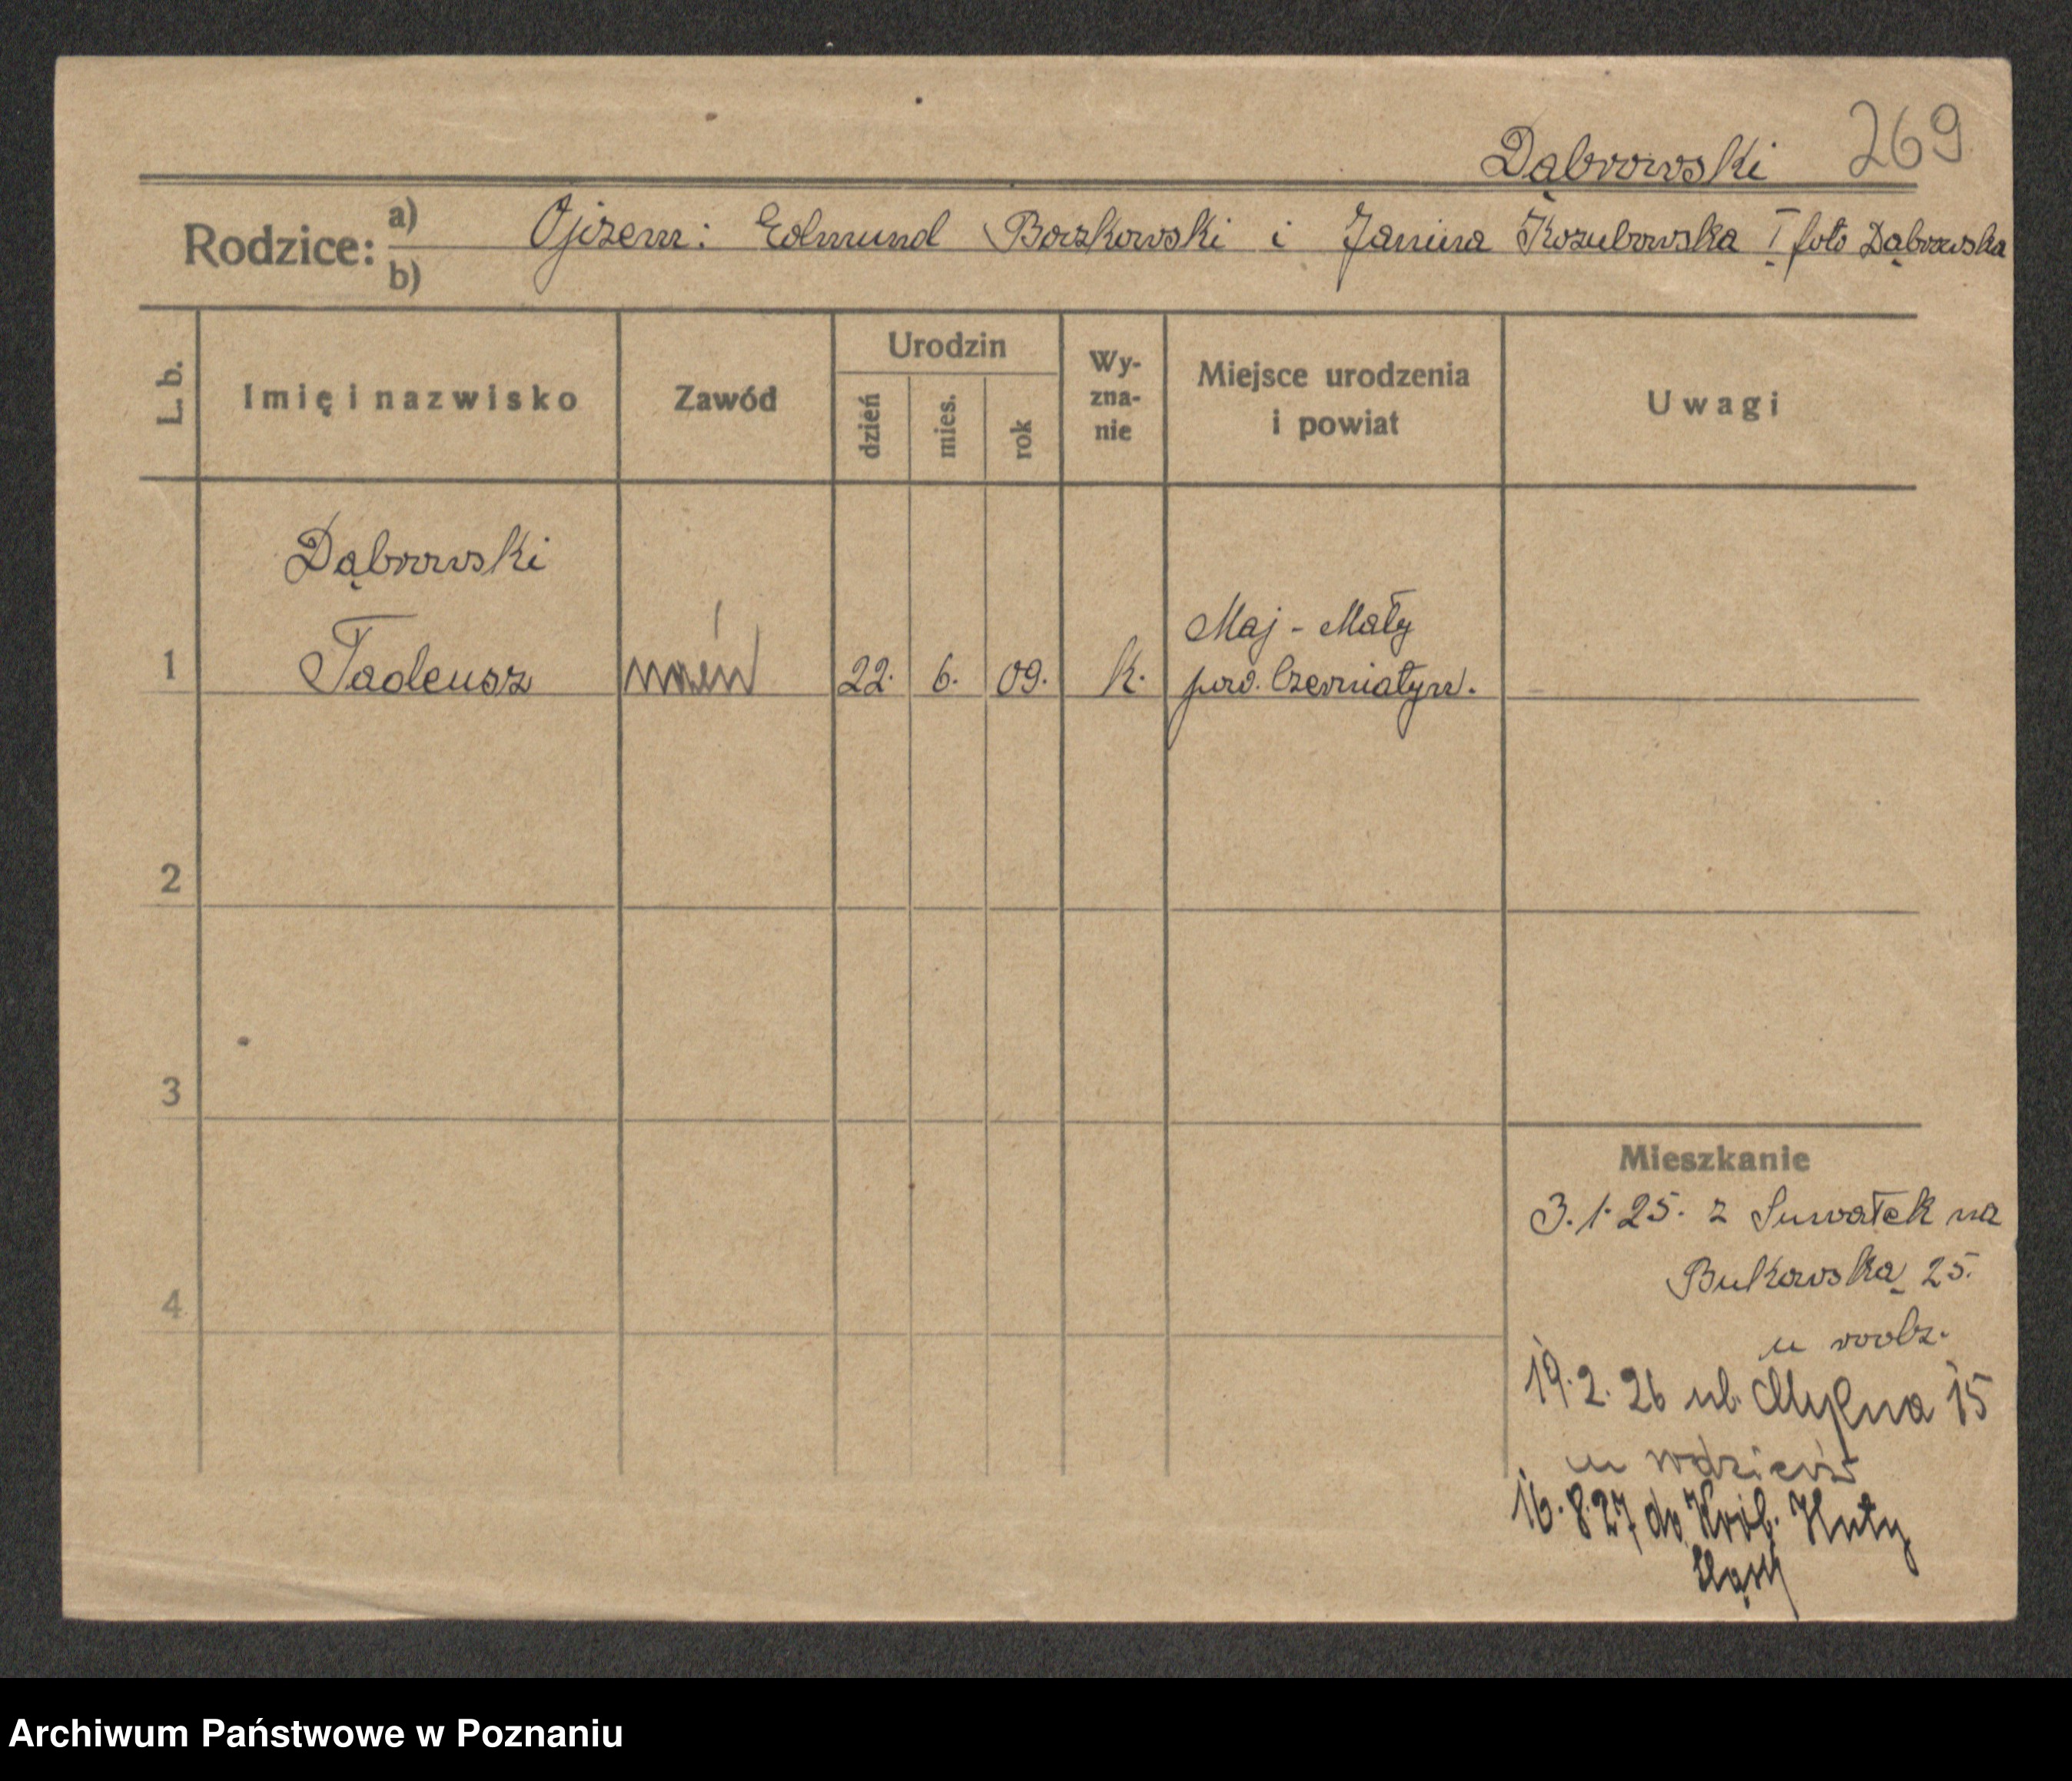 Dąbrowski 269
Rodzice: a) Ojczem: Edmund Boczkowski i Janina Kozubowska I foto Dąbrowska
b)
L. b.
Imię i nazwisko
Zawód
Urodzin
dzień
mies.
rok
Wy-
zna-
nie
Miejsce urodzenia
i powiat
Uwagi
Dąbrowski
1 Tadeusz uczeń 22. 6. 09. k. Maj - Mały
pow. Czerniatyn.
2
3
4
Mieszkanie
3.1.25. z Suwałek na
Bukowską 25.
u rodz.
19.2.26 ul. Młyńska 15
u rodziców
16.8.27 do Król. Huty
Śląsk
Archiwum Państwowe w Poznaniu